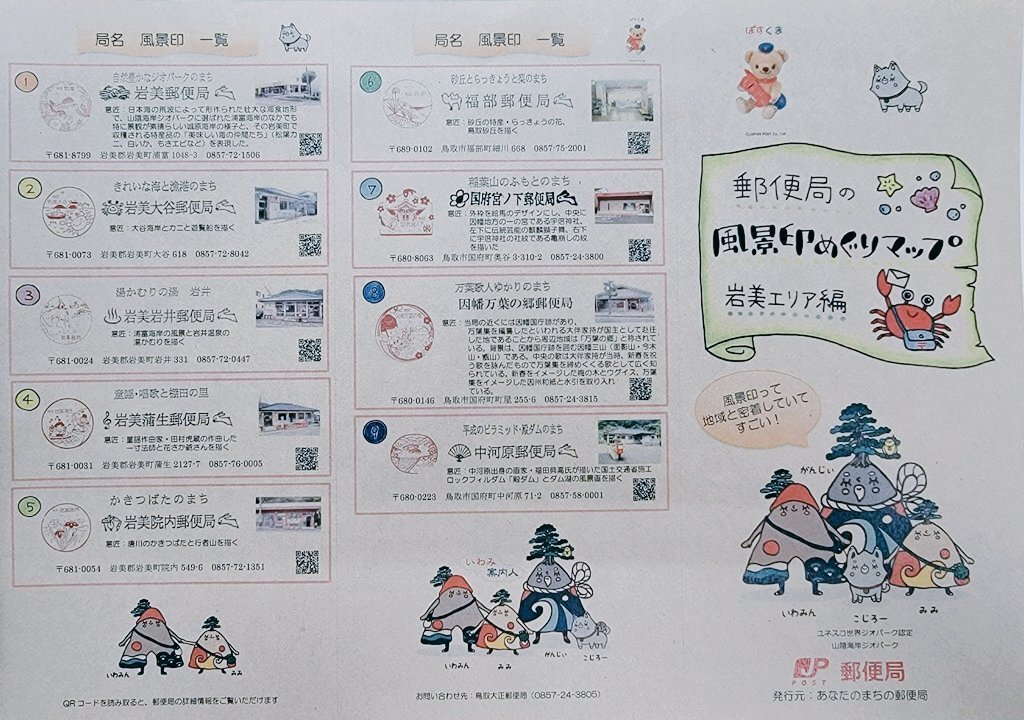 局名 風景印 一覧
1
自然豊かなジオパークのまち
岩美郵便局
意匠：日本海の荒波によって形作られた壮大な海食地形
で、山陰海岸ジオパークに選ばれた浦富海岸のなかでも
特に景観が素晴らしい城原海岸の様子と、その岩美町で
収穫される特産品の「美味しい海の仲間たち」（松葉ガ
ニ、白いか、もさエビなど）を表現した。
〒681-8799 岩美郡岩美町浦富 1048-3 0857-72-1506
2
きれいな海と漁港のまち
岩美大谷郵便局
意匠：大谷海岸とカニと遊覧船を描く
〒681-0073 岩美郡岩美町大谷 618 0857-72-8042
3
湯かむりの湯 岩井
岩美岩井郵便局
意匠：浦富海岸の風景と岩井温泉の
湯かむりを描く
〒681-0024 岩美郡岩美町岩井 331 0857-72-0447
4
童謡・唱歌と棚田の里
岩美蒲生郵便局
意匠：童謡作曲家・田村虎蔵の作曲した
一寸法師と花さか爺さんを描く
〒681-0031 岩美郡岩美町蒲生 2127-7 0857-76-0005
5
かきつばたのまち
岩美院内郵便局
意匠：唐川のかきつばたと行者山を描く
〒681-0054 岩美郡岩美町院内 549-6 0857-72-1351
いわみん
みみ
QRコードを読み取ると、郵便局の詳細情報をご覧いただけます
局名 風景印 一覧
6
砂丘とらっきょうと梨のまち
福部郵便局
意匠：砂丘の特産・らっきょうの花、
鳥取砂丘を描く
〒689-0102 鳥取市福部町細川 668 0857-75-2001
7
稲葉山のふもとのまち
国府宮ノ下郵便局
意匠：外枠を絵馬のデザインにし、中央に
因幡地方の一の宮である宇倍神社、
左下に伝統芸能の麒麟獅子舞、右下
に宇倍神社の社紋である亀崩しの紋
を描いた
〒680-8063 鳥取市国府町奥谷 3-310-2 0857-24-3800
8
万葉歌人ゆかりのまち
因幡万葉の郷郵便局
意匠：当局の近くには因幡国庁跡があり、
万葉集を編纂したといわれる大伴家持が国主として赴任
した地であることから周辺地域は「万葉の郷」と称されて
いる。背景は、因幡国庁跡を囲む因幡三山（面影山・今木
山・甑山）である。中央の歌は大伴家持が当時、新春を祝
う歌を詠んだもので万葉集を締めくくる歌として広く知
られている。新春をイメージした梅の木とウグイス、万葉
集をイメージした因州和紙と水引を取り入れ
ている。
〒680-0146 鳥取市国府町町屋 255-6 0857-24-3815
9
平成のピラミッド・殿ダムのまち
中河原郵便局
意匠：中河原出身の画家・福田典高氏が描いた国土交通省施工
ロックフィルダム「殿ダム」とダム湖の風景画を描く
〒680-0223 鳥取市国府町中河原 71-2 0857-58-0001
いわみ
案内人
いわみん
みみ
がんじぃ
こじろー
お問い合わせ先：鳥取大正郵便局（0857-24-3805）
ぽすくま
©JAPAN POST Co., Ltd.
郵便局の
風景印めぐりマップ
岩美エリア編
風景印って
地域と密着していて
すごい！
がんじぃ
いわみん
こじろー
みみ
ユネスコ世界ジオパーク認定
山陰海岸ジオパーク
JP
POST
郵便局
発行元：あなたのまちの郵便局